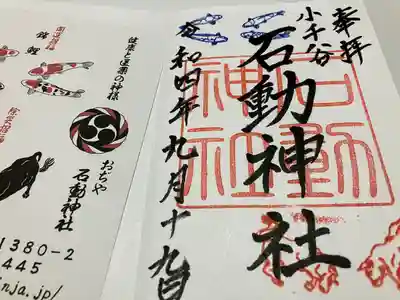 奉拝
小千谷
石動神社
令和四年九月十九日
石動神社
健康と医薬の神様
おぢや
石動神社
錦鯉
1380-2
445
nja.jp/